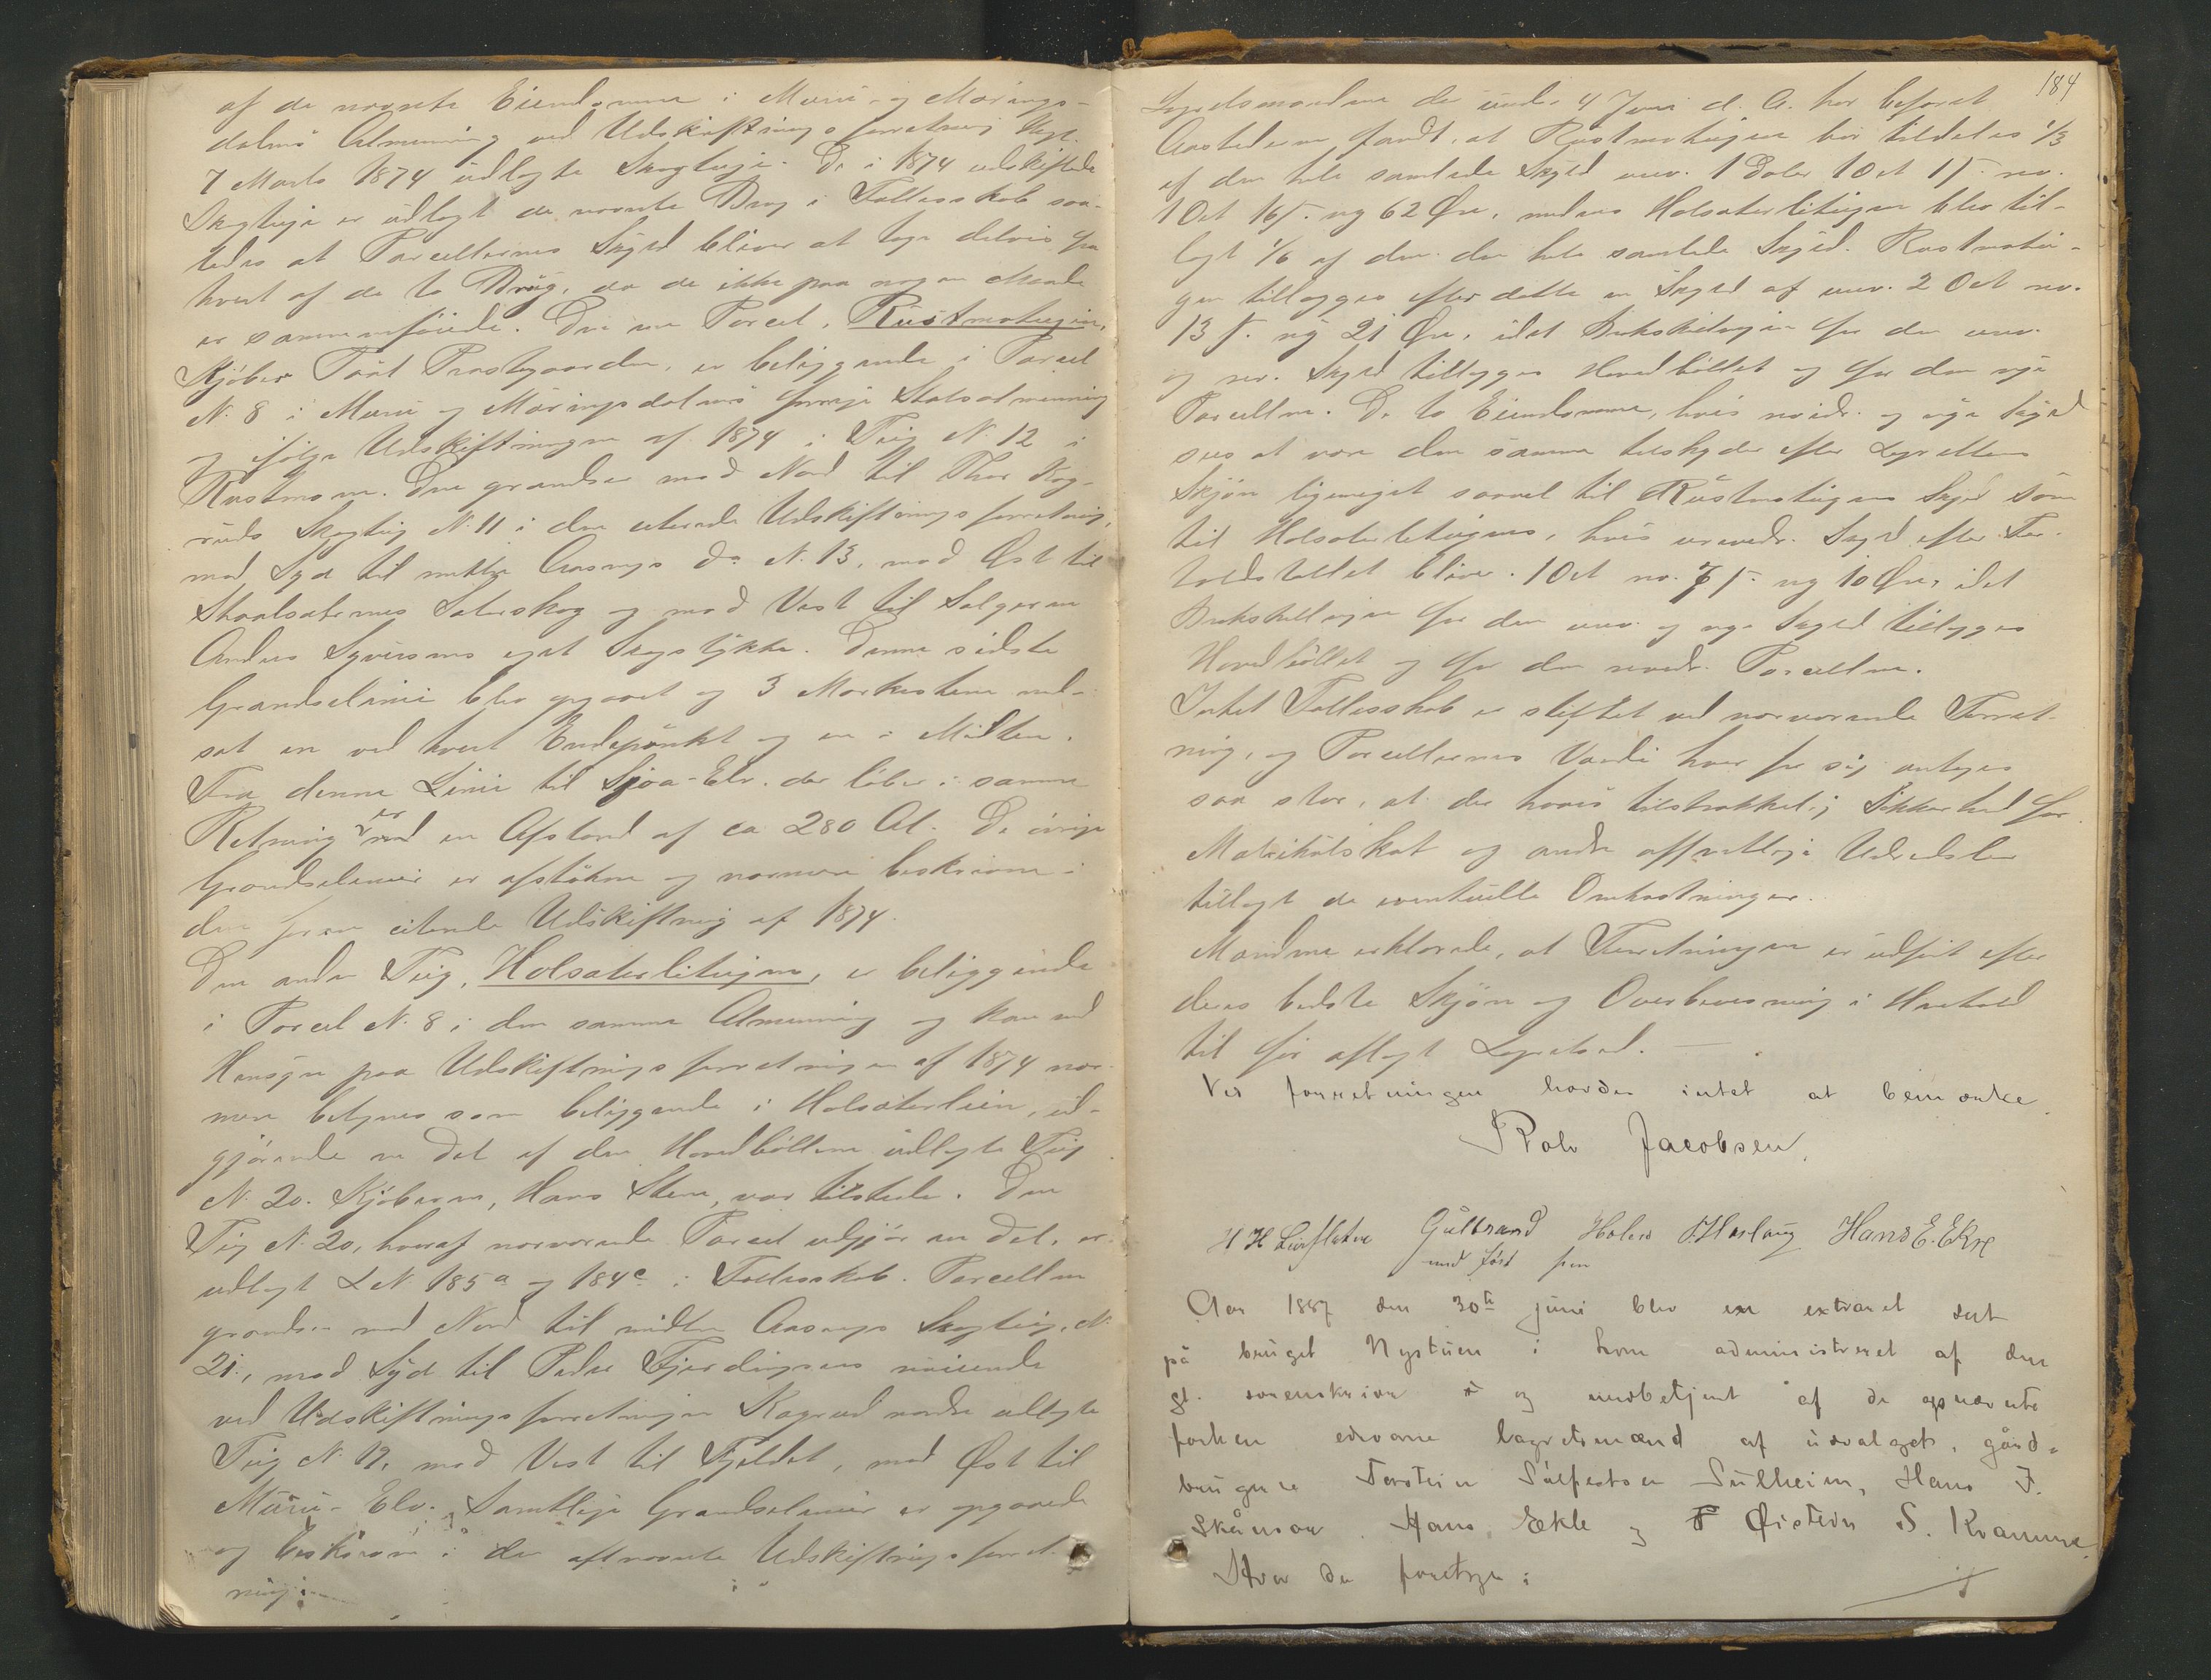 af de nævnte Eiendomme i Muru- og Mærings-
dalens Almenning ved Udskiftningsforretning
7 Marts 1874 udlagte Skogteige. De i 1874 udskiftede
Skogteige er udlagt de nævnte Brug i Fællesskab saa-
ledes at Parcellernes Skyld bliver at tage delvis fra
hvert af de to Brug, da de ikke paa nogen Maade
er sammenføiede. Den ene Parcel, Rustmoteigen,
Kjøber Paal Prestegaarden, er beliggende i Parcel
N. 8 i Muru og Mæringsdalens forrige Statsalmenning
og ifølge Udskiftningen af 1874 i Teig N. 12 i
Rustmoen. Den grændser mod Nord til Thor Kog-
ruds Skogteig N. 11 i den citerede Udskiftningsforretning,
mod Syd til midtre Aasrygs do N. 13, mod Øst til
Skaalsætrenes Sæterskog og mod Vest til Sælgeren
Anders Syversens eget Skogstykke. Denne sidste
Grændselinie blev opgaaet og 3 Merkestene ned-
sat en ved hvert Endepunkt og en i Midten.
Fra denne Linie til Sjoa-Elv der løber i samme
Retning er en Afstand af ca 280 Al. De øvrige
Grændselinier er afstukne og nærmere beskrevne i
den foran citerede Udskiftning af 1874.
Den anden Teig, Holsæterliteigen, er beliggende
i Parcel N. 8 i den samme Almenning og kan med
Hensyn paa Udskiftningsforretningen af 1874 nær-
mere betegnes som beliggende i Holsæterlien, ud-
gjørende en Del af den Hovedbøllerne udlagte Teig
N. 20. Kjøberen, Hans Steen, var tilstede. Den
Teig N. 20, hvoraf nærværende Parcel udgjør en Del, er
udlagt L N. 185a og 184c i Fællesskab. Parcellen
grændser mod Nord til midtre Aasrygs Skogteig, N.
21, mod Syd til Peder Fjerdingsens nuværende
ved Udskiftningsforretningen Kogrud nordre udlagte
Teig N. 19, mod Vest til Fjeldet, mod Øst til
Muru-Elv. Samtlige Grændselinier er opgaaede
og beskrevne i den oftnævnte Udskiftningsforret-
ning.
184
Lagrettesmændene der under 4 Juni d. A. har befaret
Aastederne fandt, at Rustmoteigen bør tildeles 1/3
af den hele samlede Skyld urev. 1 Daler 1 Ort 1 s. rev.
1 Ort 16 s. ny 62 Øre, medens Holsæterliteigen blev til-
lagt 1/6 af den hele samlede Skyld. Rustmotei-
gen tillægges efter dette en Skyld af urev. 2 Ort rev.
13 s. ny 21 Øre, idet Brøkskillingen for den urev.
og rev. Skyld tillægges Hovedbøllet og for den nye
Parcellen. De to Eiendomme, hvis revider. og nye Skyld
sees at være den samme tilskyder efter Lagrettens
Skjøn ligemeget saavel til Rustmoteigens Skyld som
til Holsæterliteigens, hvis urevider. Skyld efter For-
holdstallet bliver 1 Ort rev. 7 s. ny 10 Øre, idet
Brøkskillingen for den urev. og nye Skyld tillægges
Hovedbøllet og for den revider. Parcellen.
Intet Fællesskab er stiftet ved nærværende Forret-
ning, og Parcellernes Værdi hver for sig antages
saa stor, at der haves tilstrækkelig Sikkerhed for
Matrikulskat og andre offentlige Udredsler
tillagt de eventuelle Omkostninger.
Mændene erklærede, at Forretningen er udført efter
deres bedste Skjøn og Overbevisning i Henhold
til før aflagt Lagretsed.
Ved forretningen havdes intet at bemærke.
Rolv Jacobsen.
H H Gulbrand Holen Hans E. Ekre
med ført pen
Aar 1887 den 30te juni blev en extraret sat
på bruget Nystuen i administreret af den
gl. sorenskriver og medbetjent af de opnævnte
forhen edsvorne lagrettemænd af udvalget, gård-
brugere Torstein Sulheim, Hans J.
Skånsar, Hans Ekle og Øistein S. Kvamme.
Hvor da foretoges: